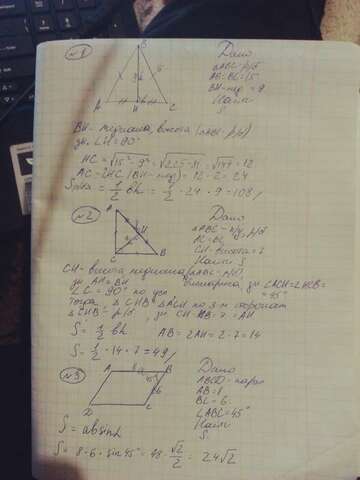 №1
Дано
△ABC - р/б
AB=BC=15
BH-мед = 9
Найти
S
B
15
9
A
H
C
BH - медиана, высота (△ABC - р/б)
∠H=90°
HC = √15² - 9² = √225-81 = √144 = 12
AC = 2HC (BH - мед) = 12 · 2 = 24
= 1/2 bh = 1/2 · 24 · 9 = 108
№2
Дано
△ABC - п/у, р/б
AC=BC
CH - высота = 7
Найти S
A
H
C
B
CH - высота, медиана, (△ABC - р/б),
AH=BH
∠ACH = ∠HCB = 45°
∠C = 90° по усл
тогда, △CHB = △ACH по 3-м сторонам
△CHB - р/б, CH=HB=7=AH
S = 1/2 bh
AB = 2AH = 2 · 7 = 14
S = 1/2 · 14 · 7 = 49
№3
Дано
ABCD - пар
AB=8
BC=6
∠ABC=45°
Найти
S
A
8
B
45°
6
D
C
S = absinα
S = 8 · 6 · sin45° = 48 · √2/2 = 24√2